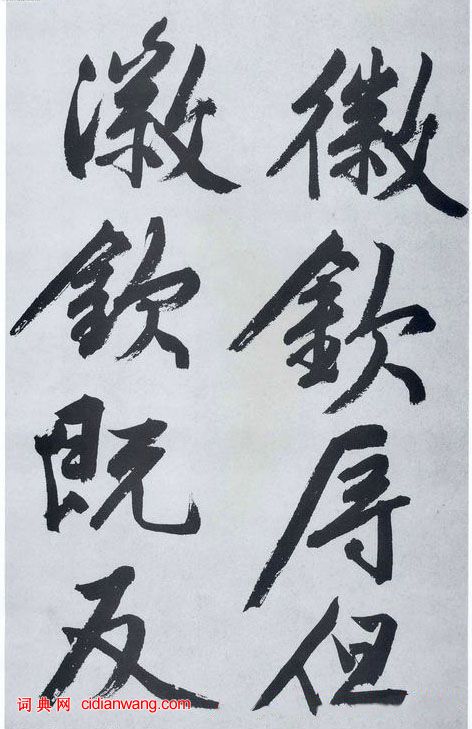 徽欽辱但
徽欽既反
词典网 cidianwang.com